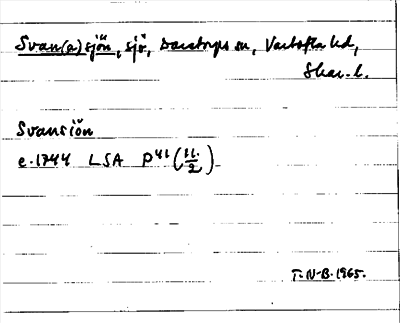 Svan(a)sjön, sjö, Daretorps sn, Vartofta hd,
Skar. l.
Svansiön
c. 1744 LSA P41 (11/2)
T. N-B. 1965.